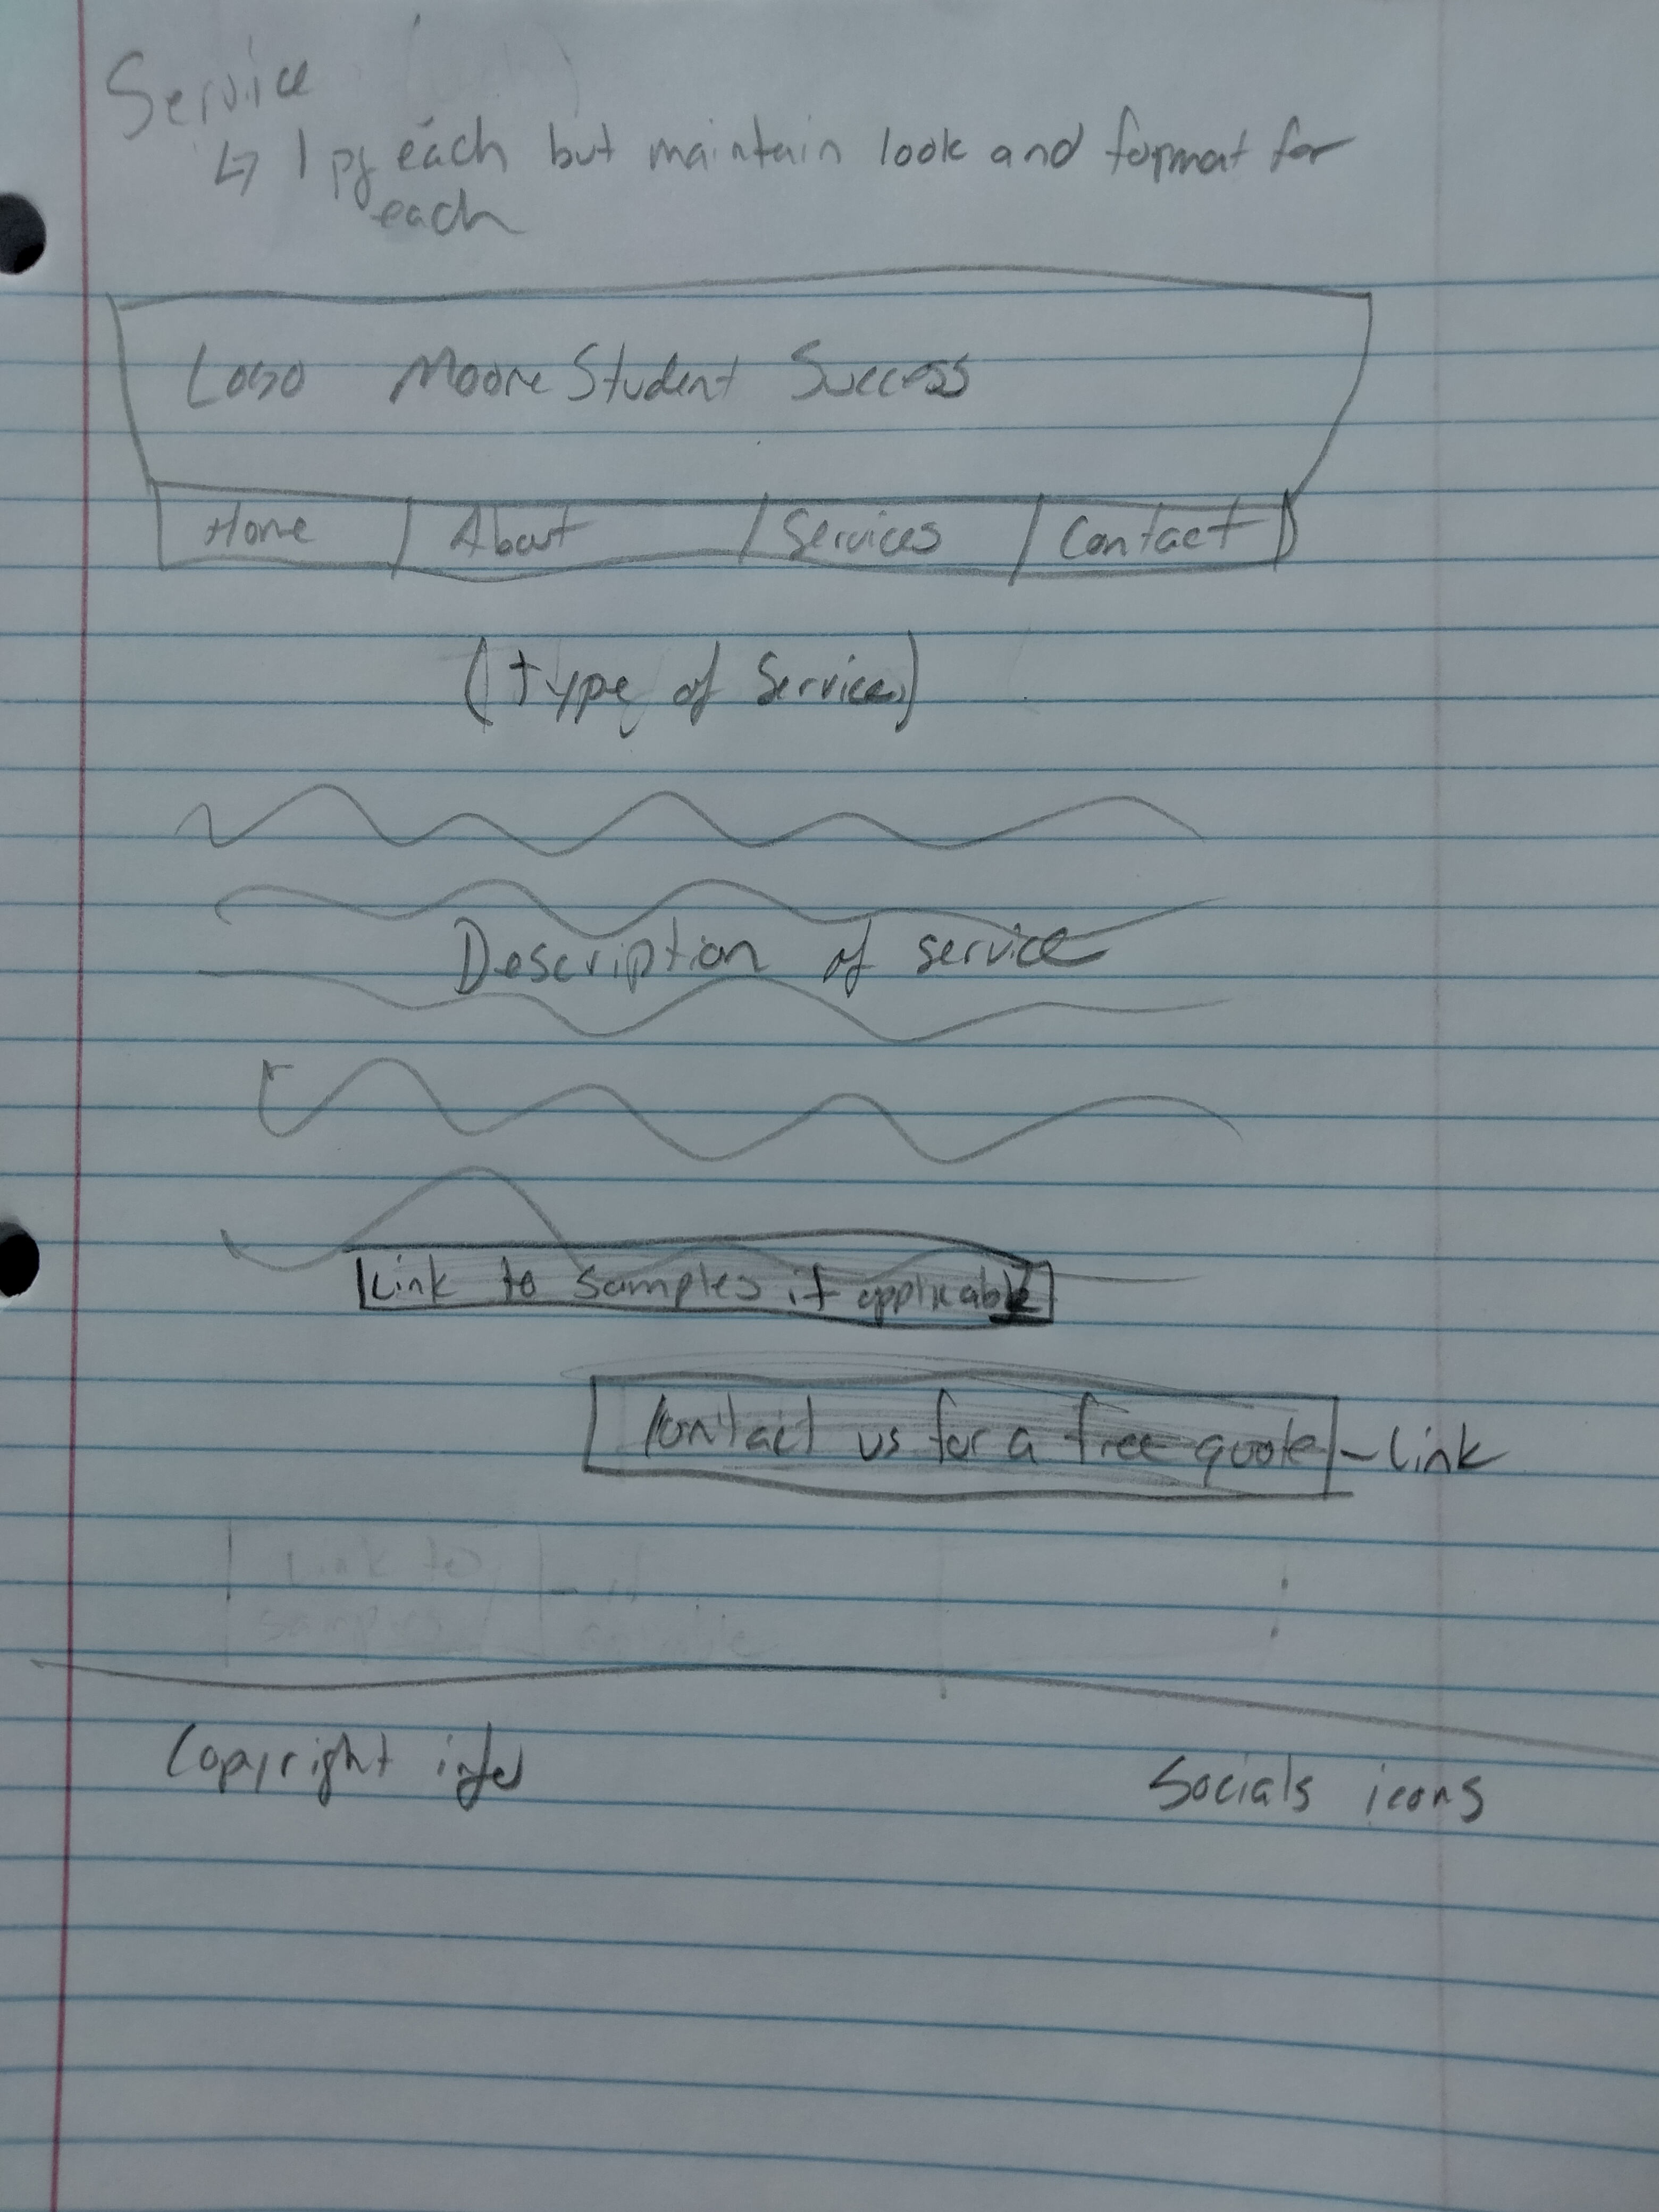 Service
↳ 1 pg each but maintain look and format for
each
Logo Moore Student Success
Home About Services Contact
(type of Service)
Description of service
Link to samples if applicable
Contact us for a free quote - link
Link to - if
samples
Copyright info Socials icons